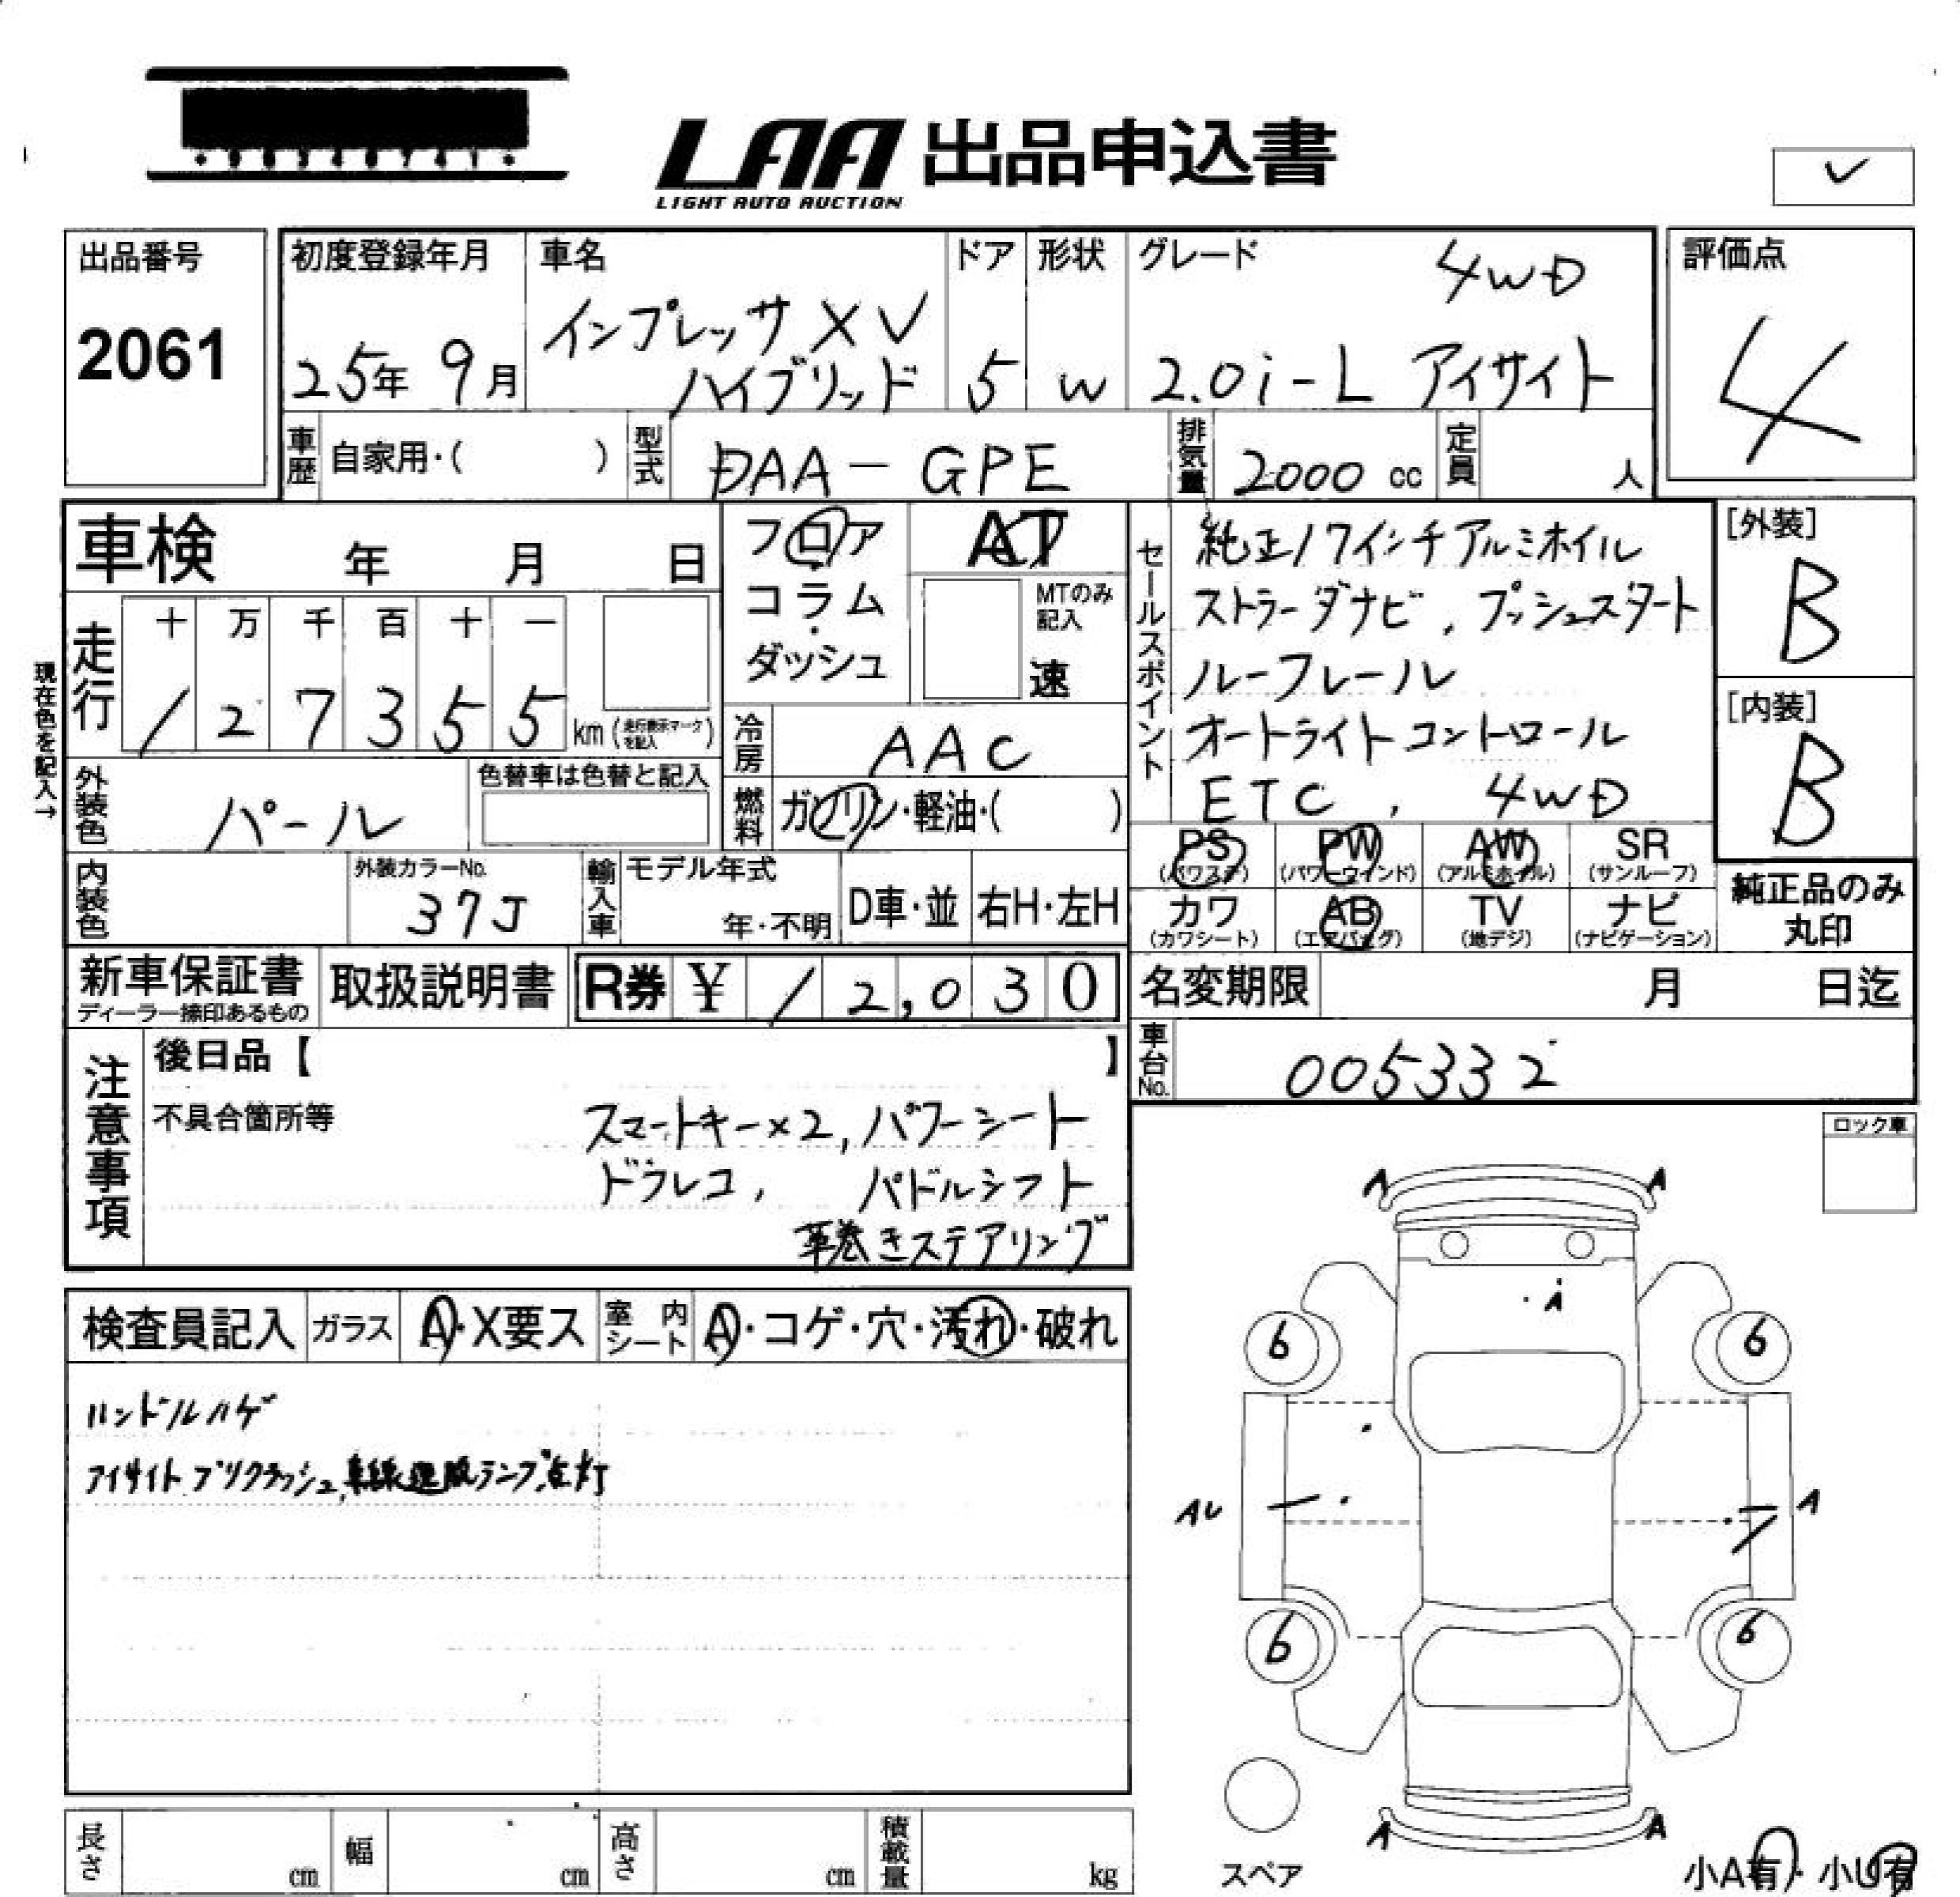 LAA 出品申込書
LIGHT AUTO AUCTION
✓
出品番号
2061
初度登録年月
25年 9月
車名
インプレッサ XV
ハイブリッド
ドア
5
形状
W
グレード
4WD
2.0i-L アイサイト
評価点
4
車歴 自家用・( )
型式 DAA-GPE
排気量 2000 cc
定員 人
車検 年 月 日
フロア
コラム
ダッシュ
AT
MTのみ
記入
速
セールスポイント
純正17インチアルミホイル
ストラーダナビ, プッシュスタート
ルーフレール
オートライトコントロール
ETC, 4WD
[外装]
B
[内装]
B
現在色を記入→
走行
十 万 千 百 十 一
1 2 7 3 5 5 km (走行表示マークを記入)
冷房 AAC
外装色 パール
色替車は色替と記入
燃料 ガソリン・軽油・( )
PS (パワステ)
PW (パワーウインド)
AW (アルミホイル)
SR (サンルーフ)
カワ (カワシート)
AB (エアバッグ)
TV (地デジ)
ナビ (ナビゲーション)
純正品のみ
丸印
内装色
外装カラーNo.
37J
輸入車
モデル年式
年・不明
D車・並
右H・左H
新車保証書
ディーラー捺印あるもの
取扱説明書
R券 ¥ 12,030
名変期限 月 日迄
車台No. 005332
注意事項
後日品【 】
不具合箇所等
スマートキー×2, パワーシート
ドラレコ, パドルシフト
革巻きステアリング
ロック車
検査員記入
ガラス A・X要ス
室内シート A・コゲ・穴・汚れ・破れ
ハンドルハゲ
アイサイトプリクラッシュ,車線逸脱ランプ点灯
A A
6 6
AU A
6 6
A A
スペア
小A有・小U有
長さ cm
幅 cm
高さ cm
積載量 kg